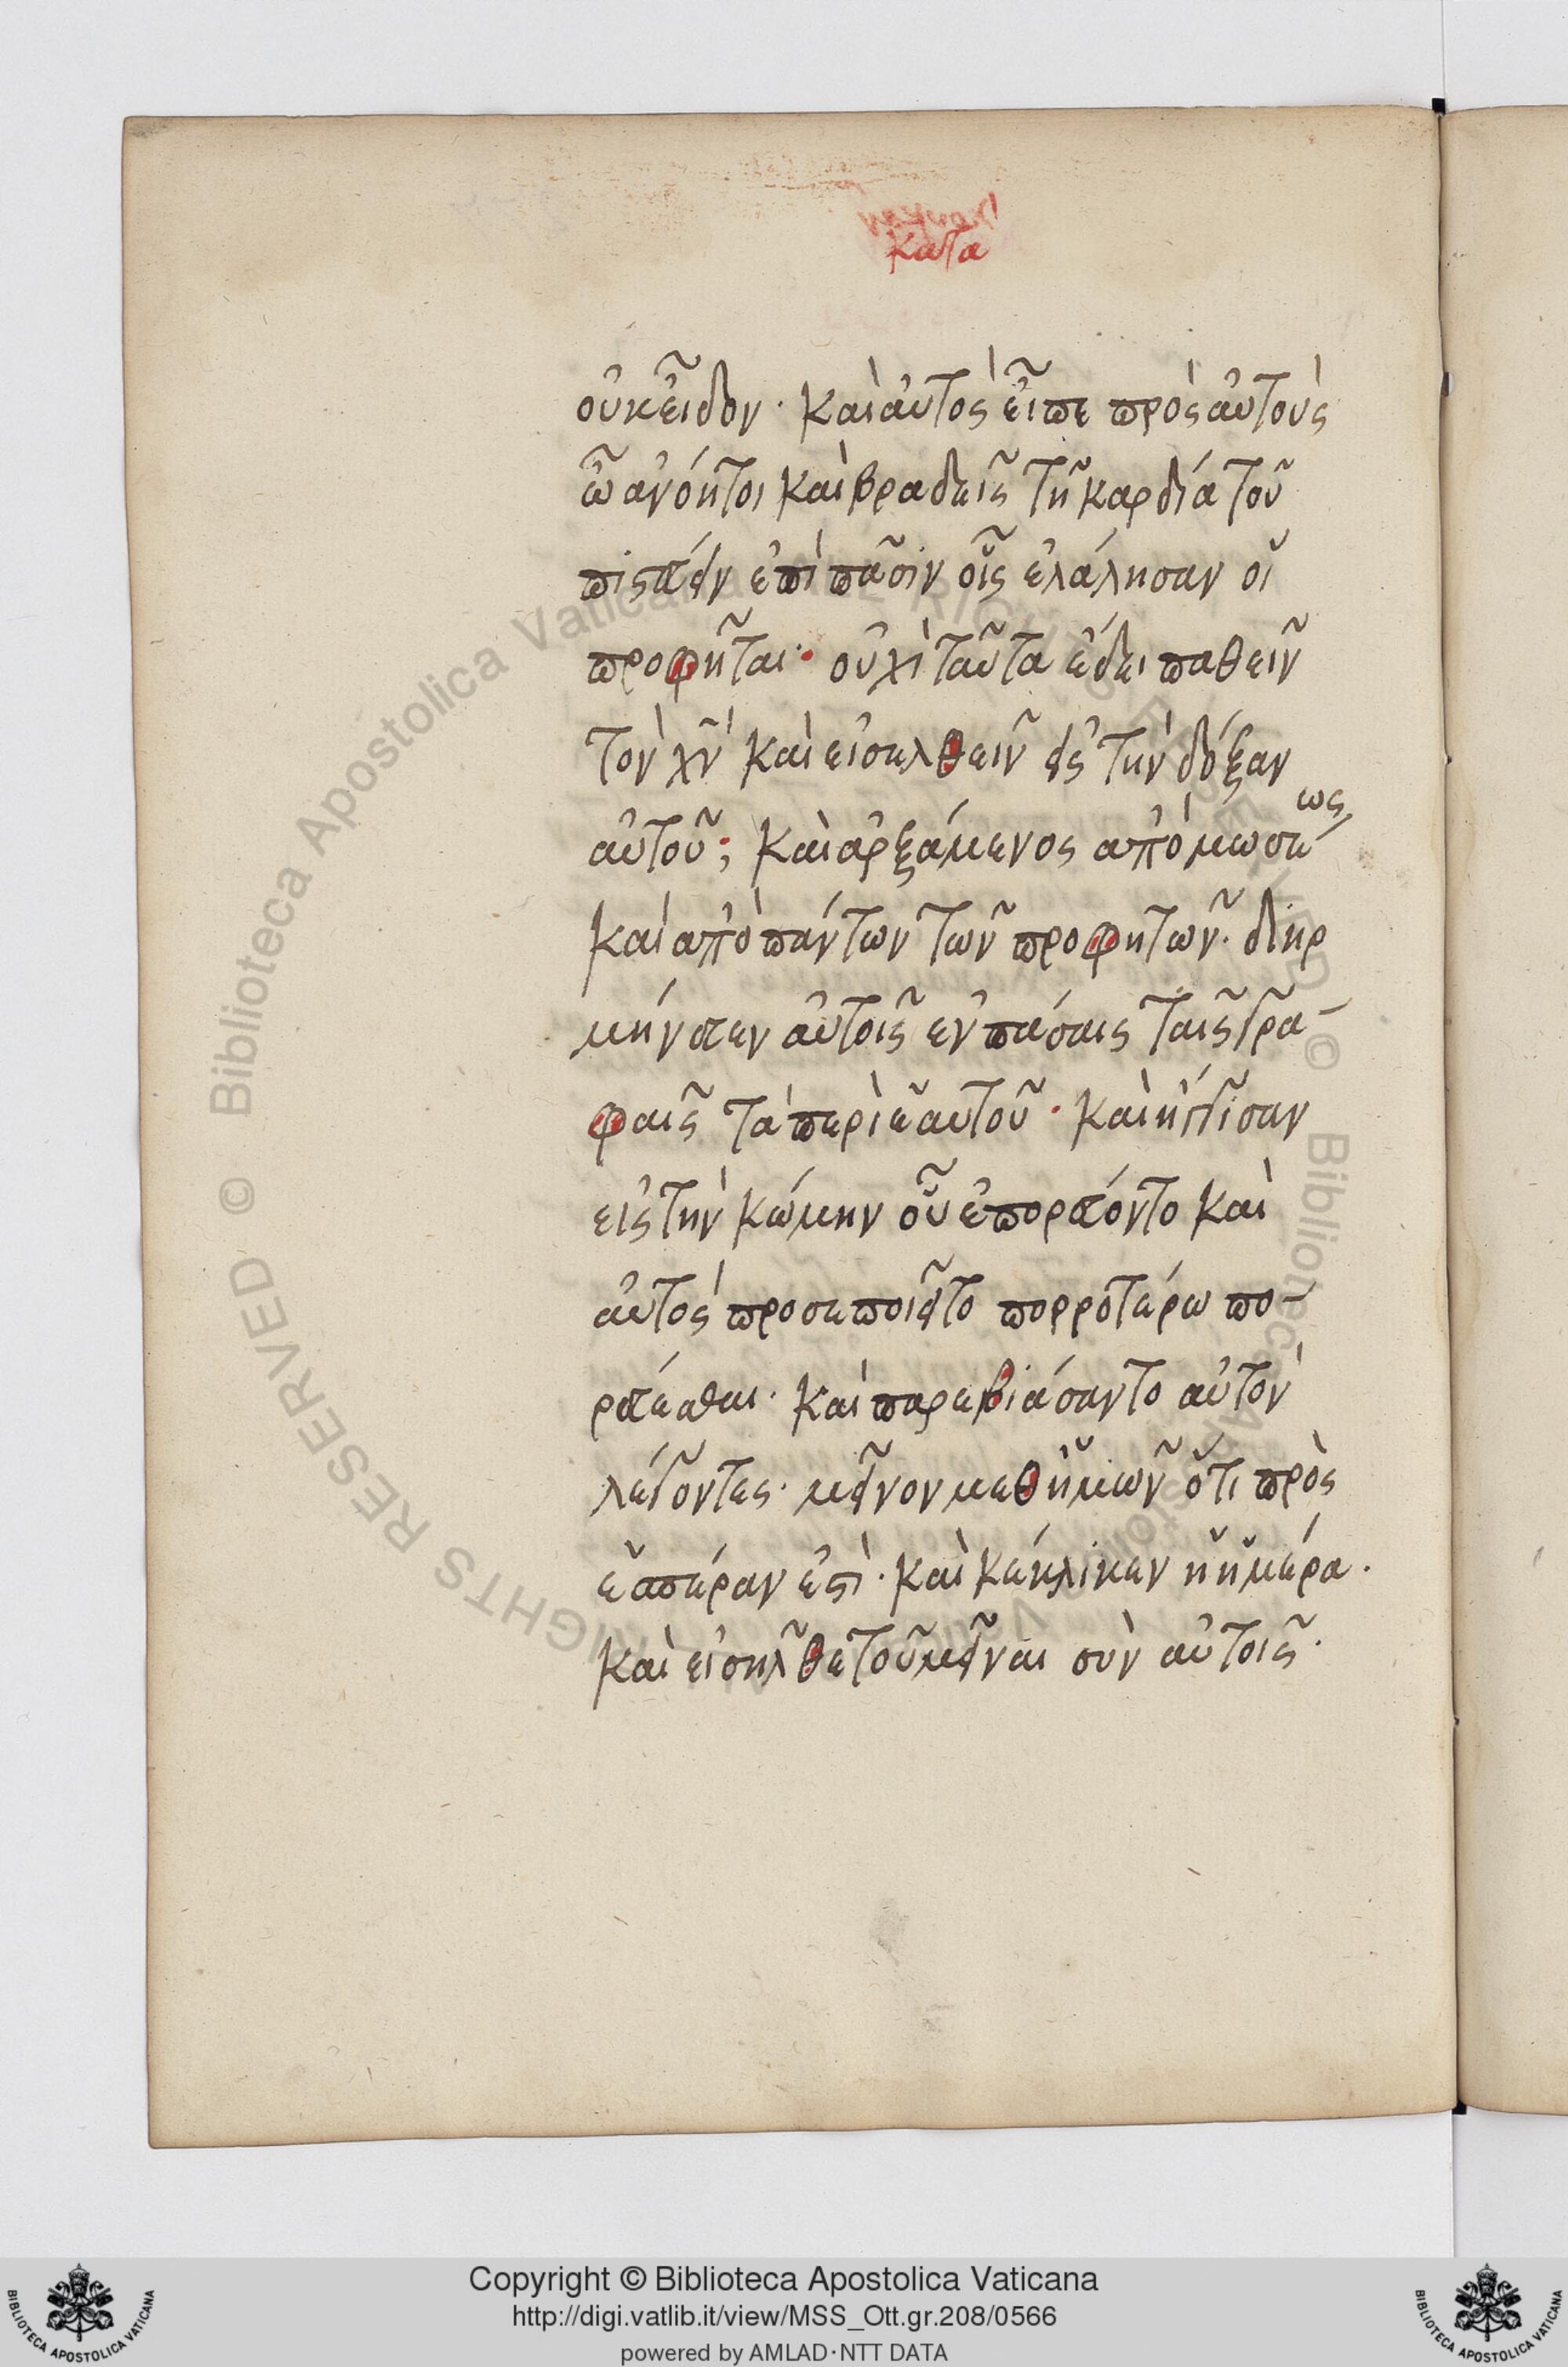 κατα
οὐκ εἶδον· καὶ αὐτὸς εἶπε πρὸς αὐτοὺς
ὦ ἀνόητοι καὶ βραδεῖς τῆ καρδία τοῦ
πιστεύειν ἐπὶ πᾶσιν οἷς ἐλάλησαν οἱ
προφῆται· οὐχὶ ταῦτα ἔδει παθεῖν
τὸν χν καὶ εἰσελθεῖν εἰς τὴν δόξαν
αὐτοῦ; καὶ ἀρξάμενος ἀπὸ μωσέως
καὶ ἀπὸ πάντων τῶν προφητῶν· διηρ
μήνευεν αὐτοῖς ἐν πάσαις ταῖς γρα-
φαῖς τὰ περὶ ἑαυτοῦ· καὶ ἤγγισαν
εἰς τὴν κώμην οὗ ἐπορεύοντο καὶ
αὐτὸς προσεποιεῖτο πορροτέρω πο-
ρεύεσθαι· καὶ παρεβιάσαντο αὐτὸν
λέγοντες· μεῖνον μεθ ἡμῶν ὅτι πρὸς
ἑσπέραν ἐστὶ· καὶ κέκλικεν ἡ ἡμέρα·
καὶ εἰσῆλθε τοῦ μεῖναι σὺν αὐτοῖς·
Copyright © Biblioteca Apostolica Vaticana
http://digi.vatlib.it/view/MSS_Ott.gr.208/0566
powered by AMLAD·NTT DATA